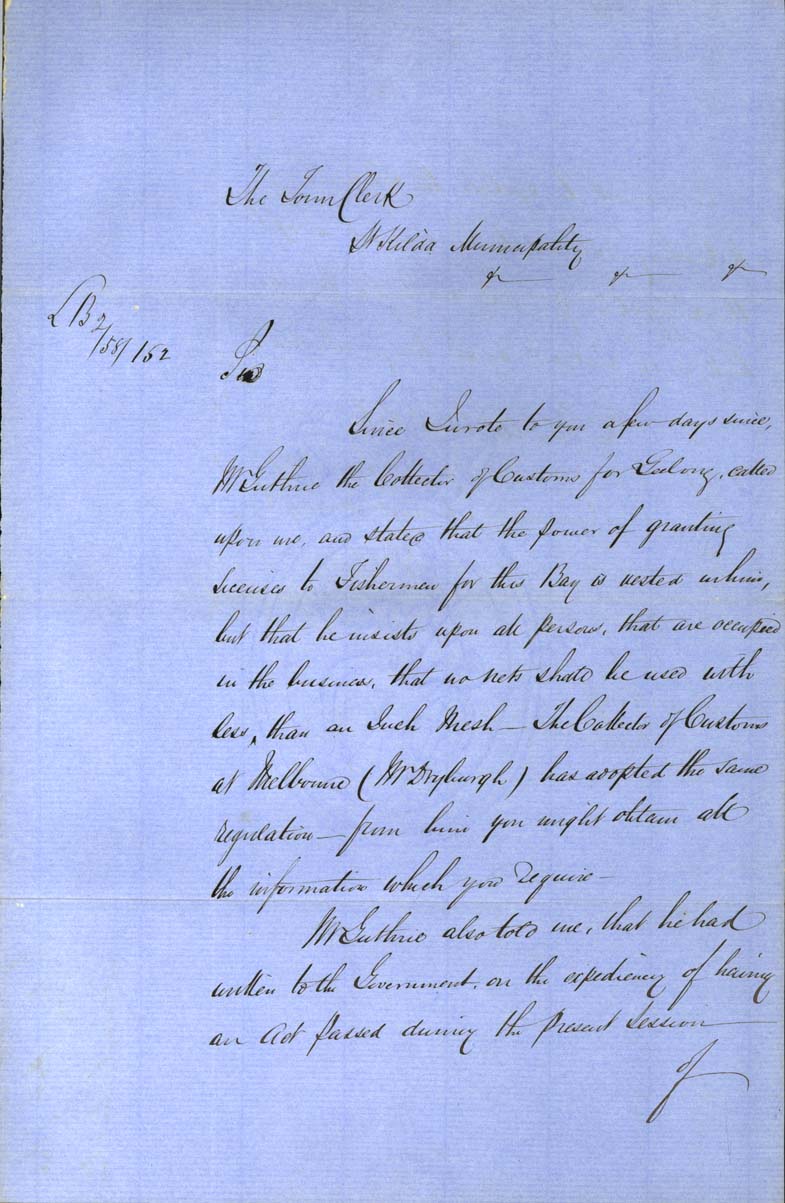 The Town Clerk
St Kilda Municipality
& & &
LB2
/58/152
Sir
Since I wrote to you a few days since,
Mr Guthrie the Collector of Customs for Geelong, called
upon me, and stated that the power of granting
licenses to Fishermen for this Bay is vested in him,
but that he insists upon all persons, that are occupied
in the business, that no nets shall be used with
less, than an Inch Mesh — The Collector of Customs
at Melbourne (Mr Dryburgh) has adopted the same
regulation — from him you might obtain all
the information which you require —
Mr Guthrie also told me, that he had
written to the Government, on the expediency of having
an Act passed during the present Session
of